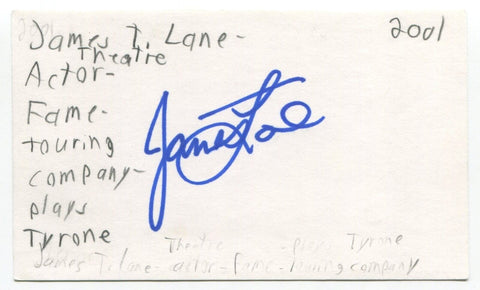 2001
James T. Lane-
Theatre
Actor-
Fame-
touring
company-
plays
Tyrone
2001
James Lane
Theatre - plays Tyrone
James T. Lane- actor- Fame- touring company